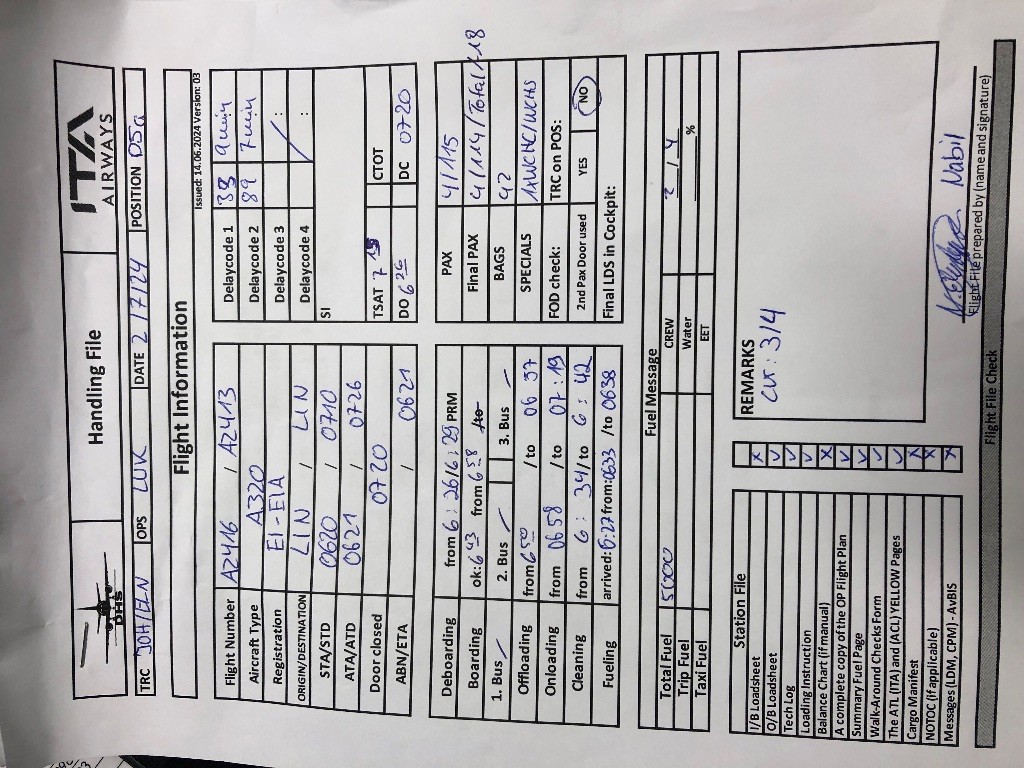 DHS
Handling File
ITA
AIRWAYS
TRC JOH/ELN OPS LUK DATE 2/7/24 POSITION D5a
Flight Information
Issued: 14.06.2024 Version: 03
Flight Number AZ416 / AZ413
Aircraft Type A320
Registration EI-EIA
ORIGIN/DESTINATION LIN / LIN
STA/STD 0620 / 0710
ATA/ATD 0621 / 0726
Door closed 0720
ABN/ETA / 0621
Delaycode 1 33 9min
Delaycode 2 89 7min
Delaycode 3 :
Delaycode 4 :
SI
TSAT 7 15 CTOT
DO 6 26 DC 0720
Deboarding from 6:26/6:29 PRM
Boarding ok: 643 from 658 /to
1. Bus 2. Bus 3. Bus
Offloading from 650 /to 06 57
Onloading from 0658 /to 07:19
Cleaning from 6:34 /to 6:42
Fueling arived: 6:27 from: 0633 /to 0638
PAX 4/115
Final PAX 4/114/Total 118
BAGS 42
SPECIALS 1xWCHC/WCHS
FOD check: TRC on POS:
2nd Pax Door used YES NO
Final LDS in Cockpit:
Fuel Message
Total Fuel 5000 CREW 2 / 4
Trip Fuel Water %
Taxi Fuel EET
Station File
I/B Loadsheet x
O/B Loadsheet v
Tech Log v
Loading Instruction v
Balance Chart (if manual) x
A complete copy of the OP Flight Plan v
Summary Fuel Page v
Walk-Around Checks Form v
The ATL (ITA) and (ACL) YELLOW Pages v
Cargo Manifest x
NOTOC (If applicable) x
Messages (LDM, CPM) - AvBIS x
REMARKS
CUT: 3/4
Nabil
Flight File prepared by (name and signature)
Flight File Check